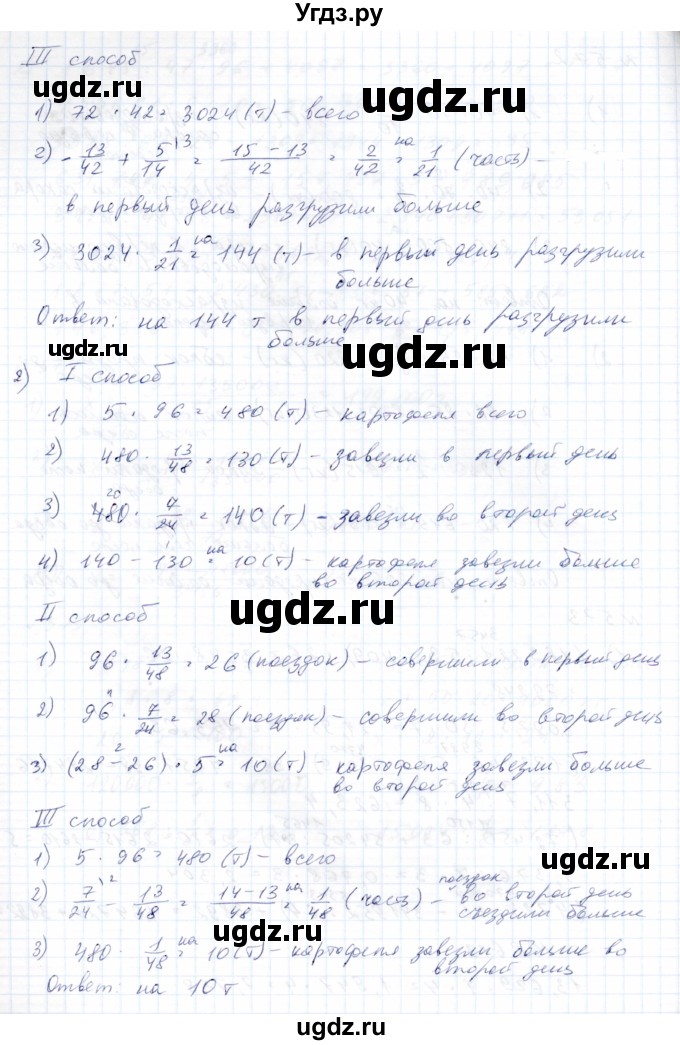 Угдз.ру
III способ
ugdz.ru ugdz.ru
1) 72 · 42 = 3024 (т) – всего
2) - 13/42 + 5/14 \3 = 15 - 13/42 = 2/42 = на 1/21 (часть) –
в первый день разгрузили больше
3) 3024 · 1/21 = на 144 (т) – в первый день разгрузили
больше
Ответ: на 144 т в первый день разгрузили
больше
ugdz.ru ugdz.ru
2) I способ
1) 5 · 96 = 480 (т) – картофеля всего
2) 480 · 13/48 = 130 (т) – завезли в первый день
3) 480 20 · 7/24 1 = 140 (т) – завезли во второй день
4) 140 – 130 = на 10 (т) – картофеля завезли больше
во второй день
ugdz.ru
II способ
1) 96 · 13/48 = 26 (поездок) – совершили в первый день
2) 96 4 · 7/24 = 28 (поездок) – совершили во второй день
ugdz.ru
3) (28 – 26) 2 · 5 = на 10 (т) – картофеля завезли больше
во второй день
III способ
ugdz.ru
1) 5 · 96 = 480 (т) – всего
2) 7/24 \2 – 13/48 = 14 - 13/48 = на 1/48 (часть) – поездок во второй день
съездили больше
ugdz.ru
3) 480 · 1/48 = на 10 (т) – картофеля завезли больше во
второй день
Ответ: на 10 т
ugdz.ru
ugdz.ru